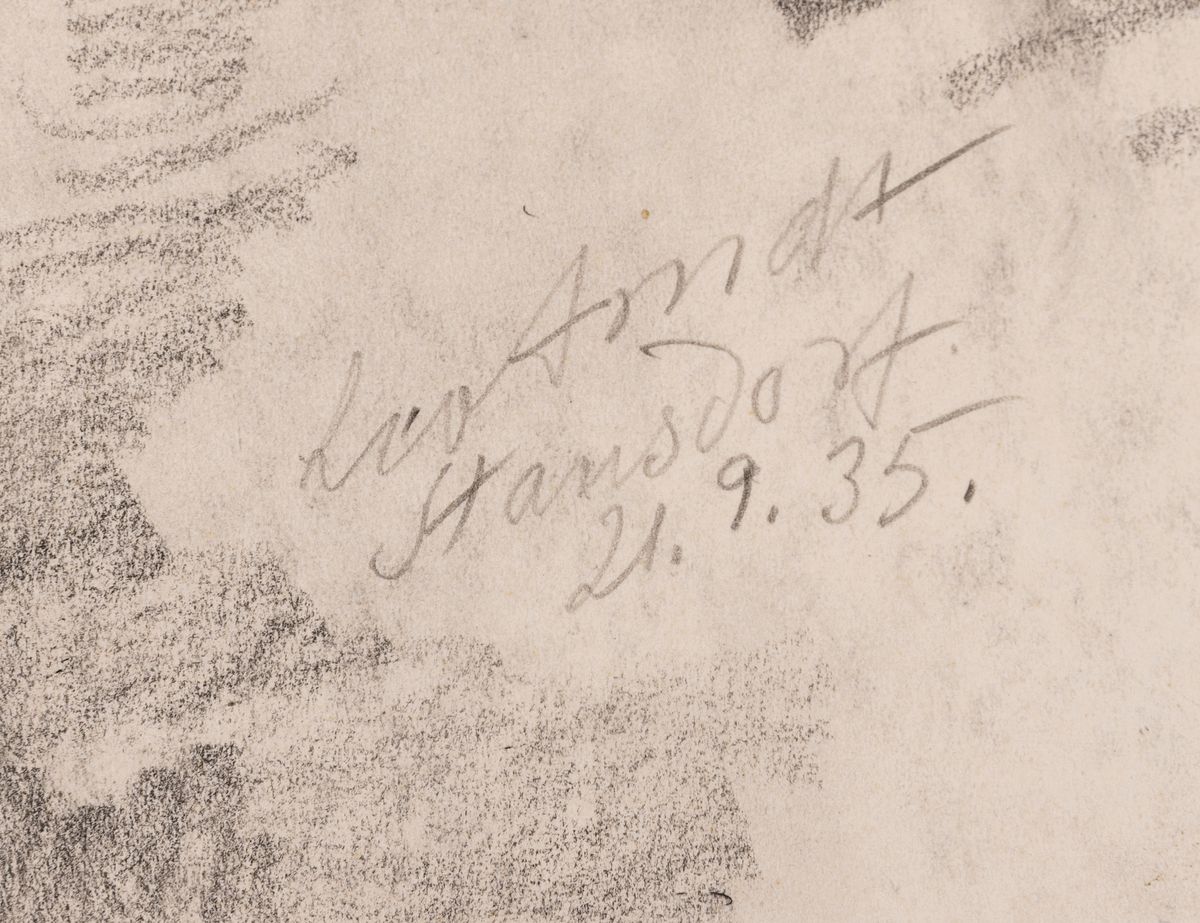 Leo Arndt
Stansdorf.
21. 9. 35.